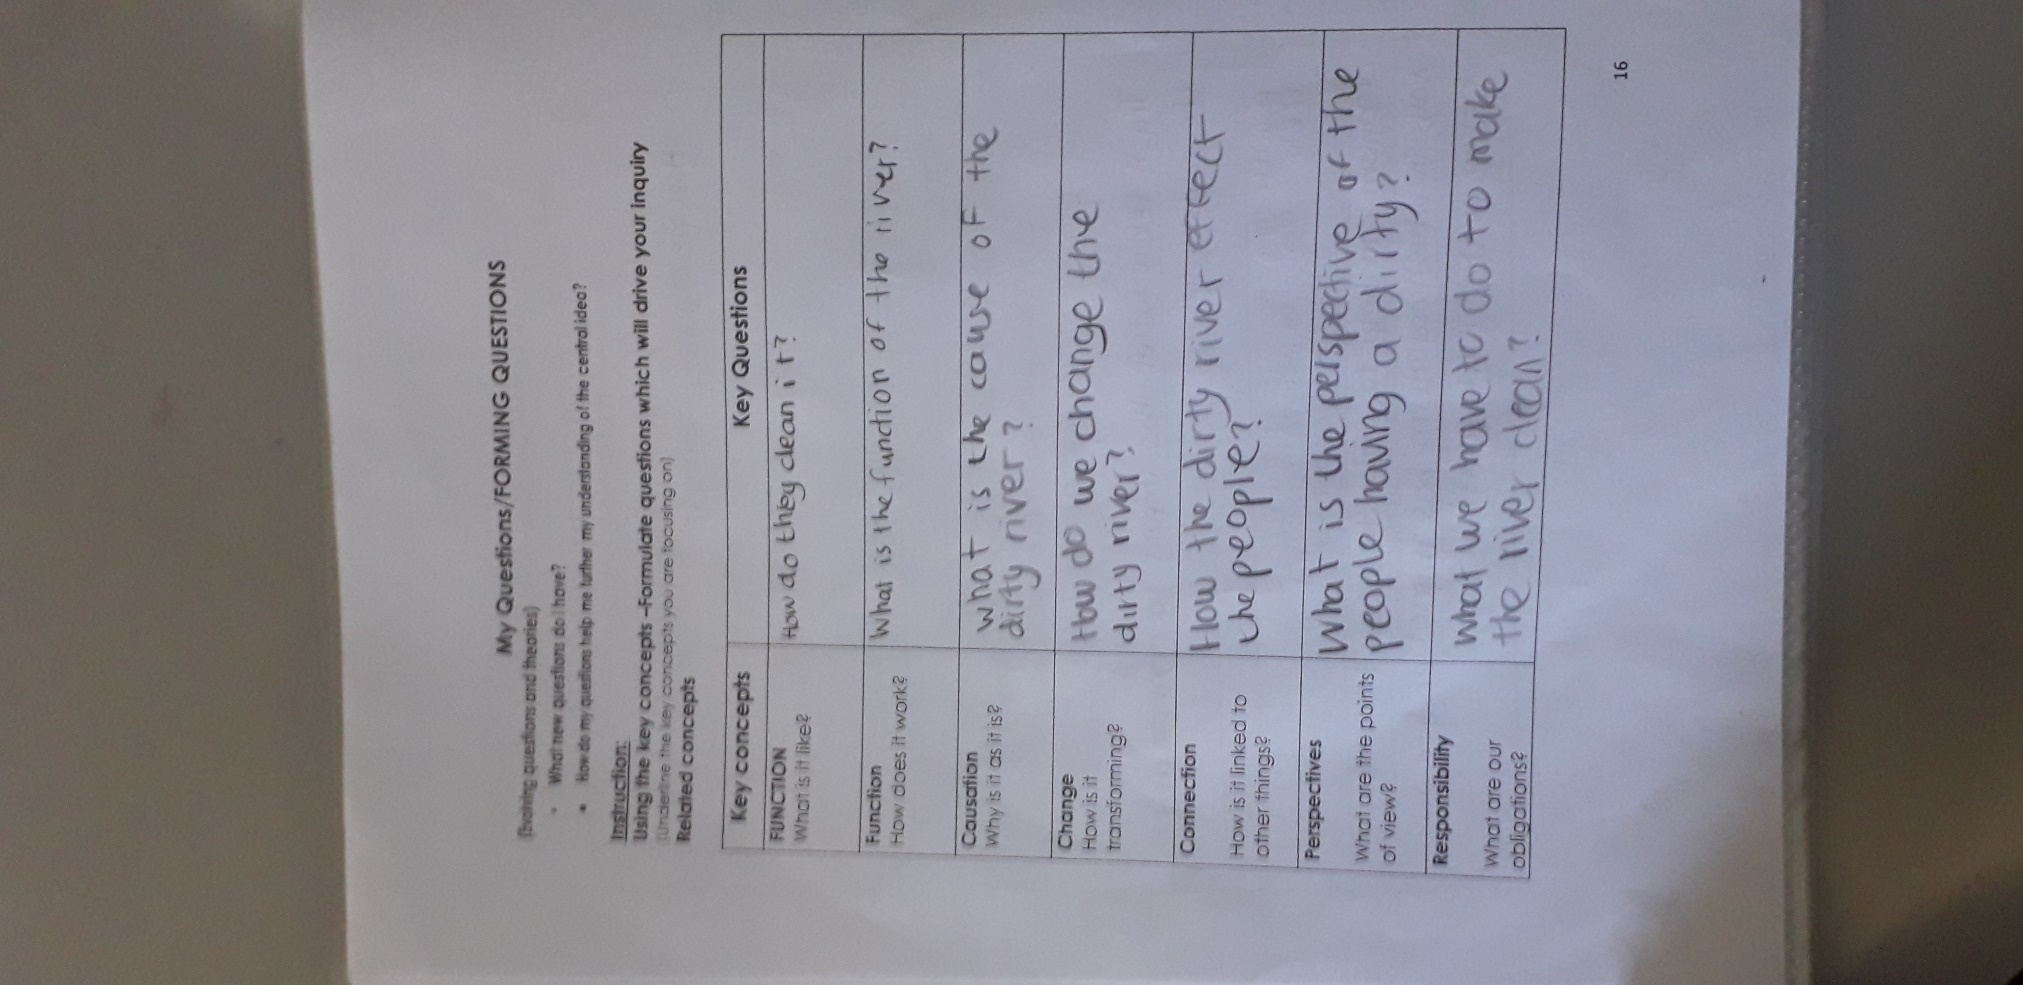 My Questions/FORMING QUESTIONS
(Evolving questions and theories)
• What new questions do I have?
• How do my questions help me further my understanding of the central idea?
Instruction:
Using the key concepts –Formulate questions which will drive your inquiry
(Underline the key concepts you are focusing on)
Related concepts
Key concepts
Key Questions
FUNCTION
What is it like?
How do they clean it?
Function
How does it work?
What is the function of the river?
Causation
Why is it as it is?
what is the cause of the
dirty river?
Change
How is it
transforming?
How do we change the
dirty river?
Connection
How is it linked to
other things?
How the dirty river effect
the people?
Perspectives
What are the points
of view?
What is the perspective of the
people having a dirty?
Responsibility
What are our
obligations?
What we have to do to make
the river clean?
16